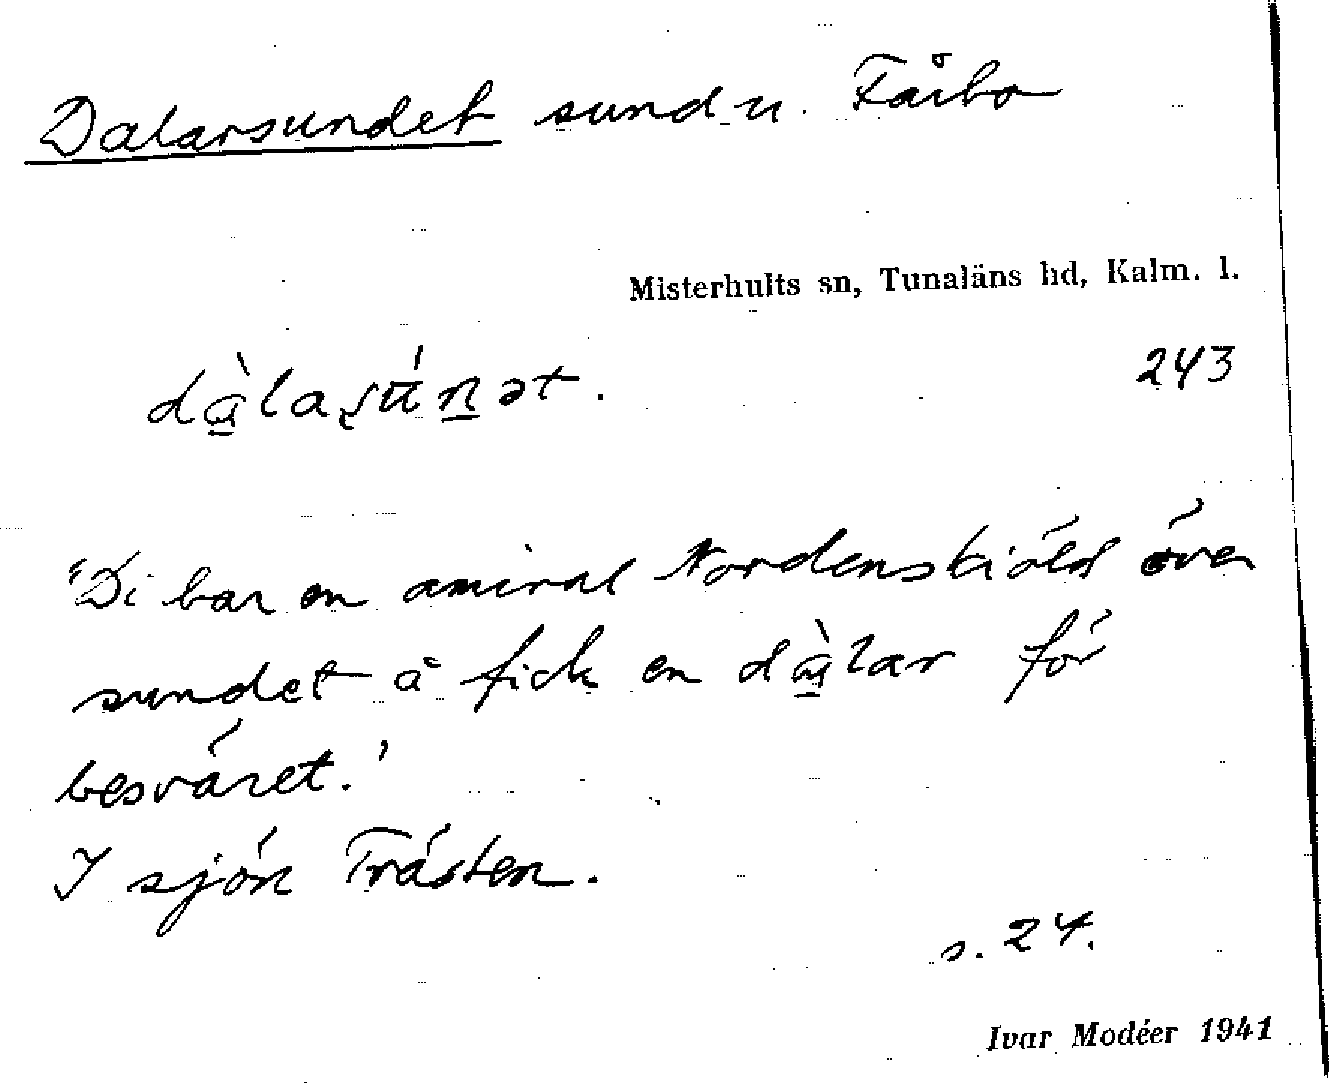 Dalarsundet sund u. Fårbo
Misterhults sn, Tunaläns hd, Kalm. l.
243
dàlaʂún̠ət.
"Di bar en amiral Nordenskiöld över
sundet å fick en dàlar för
besväret."
I sjön Trästen.
s. 24.
Ivar Modéer 1941